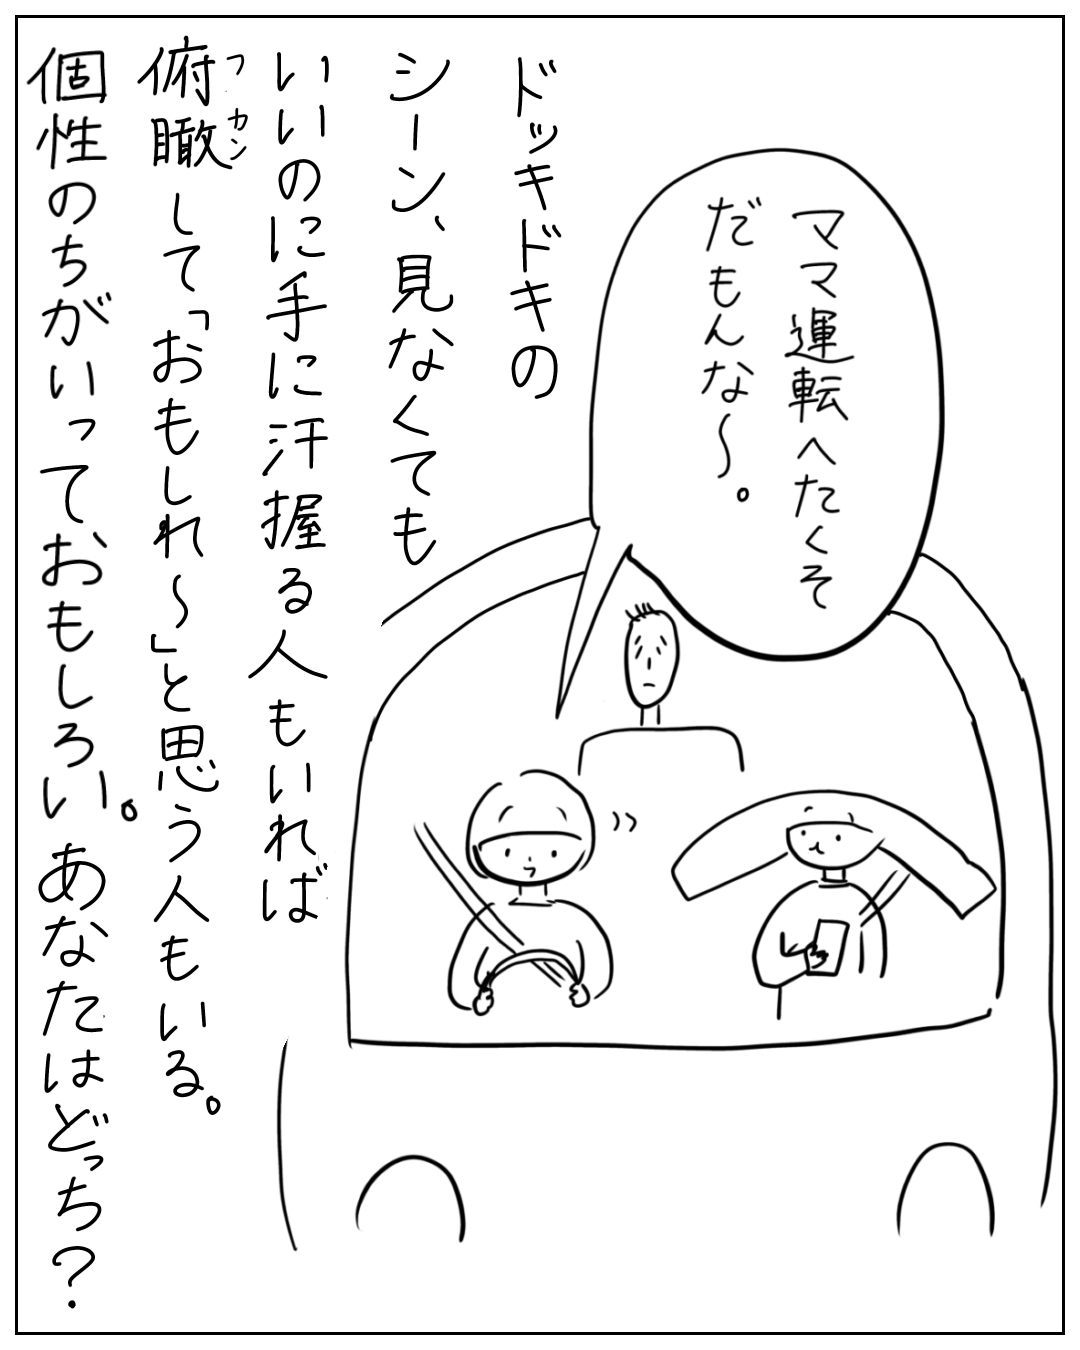 ママ運転へたくそ
だもんな〜。
ドッキドキの
シーン、見なくても
いいのに手に汗握る人もいれば
俯瞰して「おもしれ〜」と思う人もいる。
フカン
個性のちがいっておもしろい。あなたはどっち？